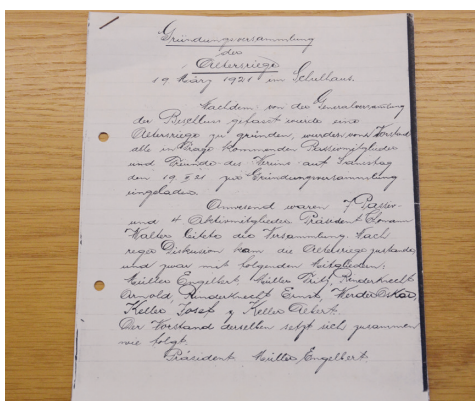 Gründungsversammlung
der
Altersriege
19 März 1921 im Schulhaus.
Nachdem von der Generalversammlung
der Beschluss gefasst wurde eine
Altersriege zu gründen, wurden vom Vorstand
alle in Frage kommenden Passivmitglieder
und Freunde des Vereins auf Samstag
den 19 III 21 zur Gründungsversammlung
eingeladen.
Anwesend waren 7 Passiv-
und 4 Aktivmitglieder. Präsident
Walter leitete die Versammlung. Nach
rege Diskusion kam die Altersriege zustande
und zwar mit folgenden Mitgliedern:
Müller Engelbert, Müller Fritz, Runderknecht
Arnold, Runderknecht Ernst, Oskar,
Keller Josef & Keller Albert.
Der Vorstand derselben setzt sich zusammen
wie folgt.
Präsident Müller, Engelbert.